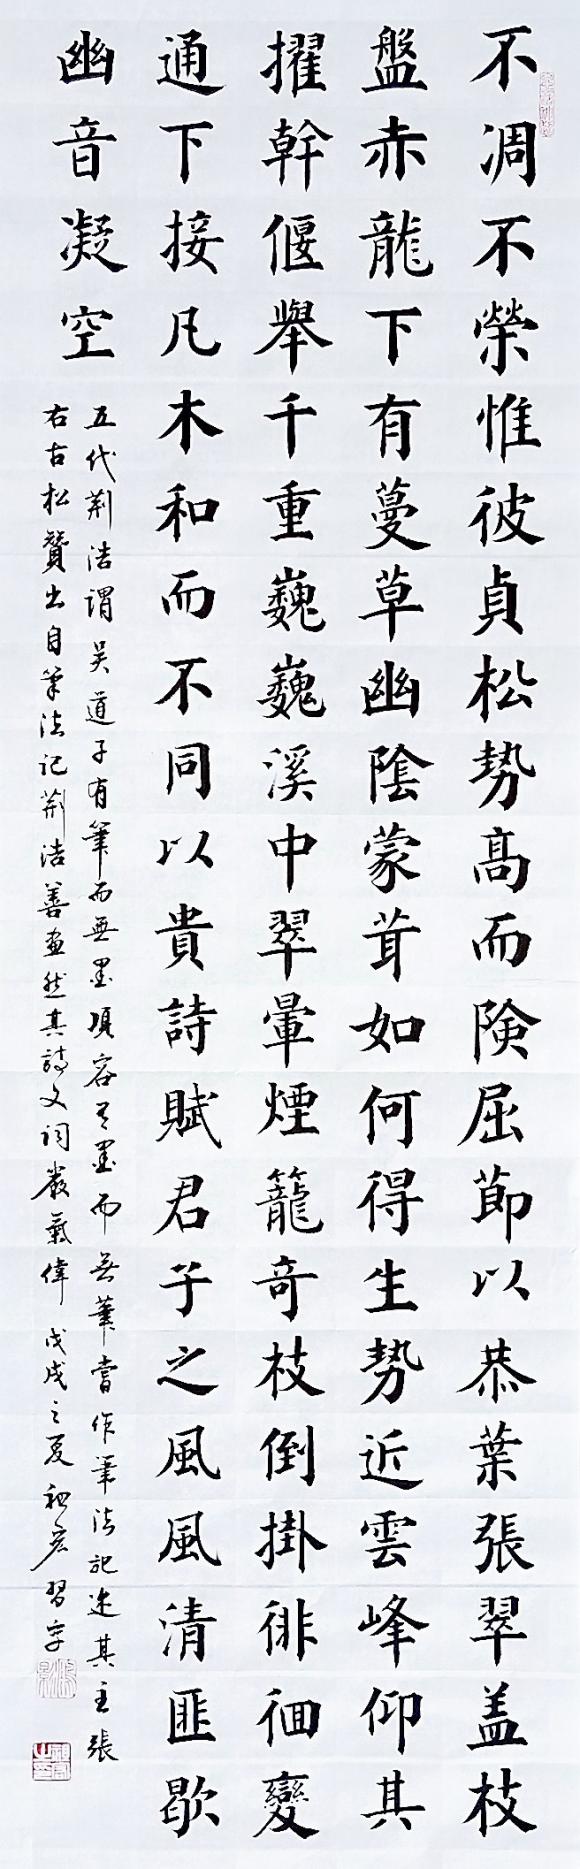 不凋不榮惟彼貞松勢高而険屈節以恭葉張翠盖枝
盤赤龍下有蔓草幽陰蒙茸如何得生勢近雲峰仰其
擢幹偃舉千重巍巍溪中翠暈煙籠奇枝倒掛徘徊變
通下接凡木和而不同以貴詩賦君子之風風清匪歇
幽音凝空
五代荆浩謂吴道子有筆而無墨項容有墨而無筆嘗作筆法記述其主張
右古松贊出自筆法記荆浩善畫然其詩文詞嚴氣偉 戊戌之夏 宏習字